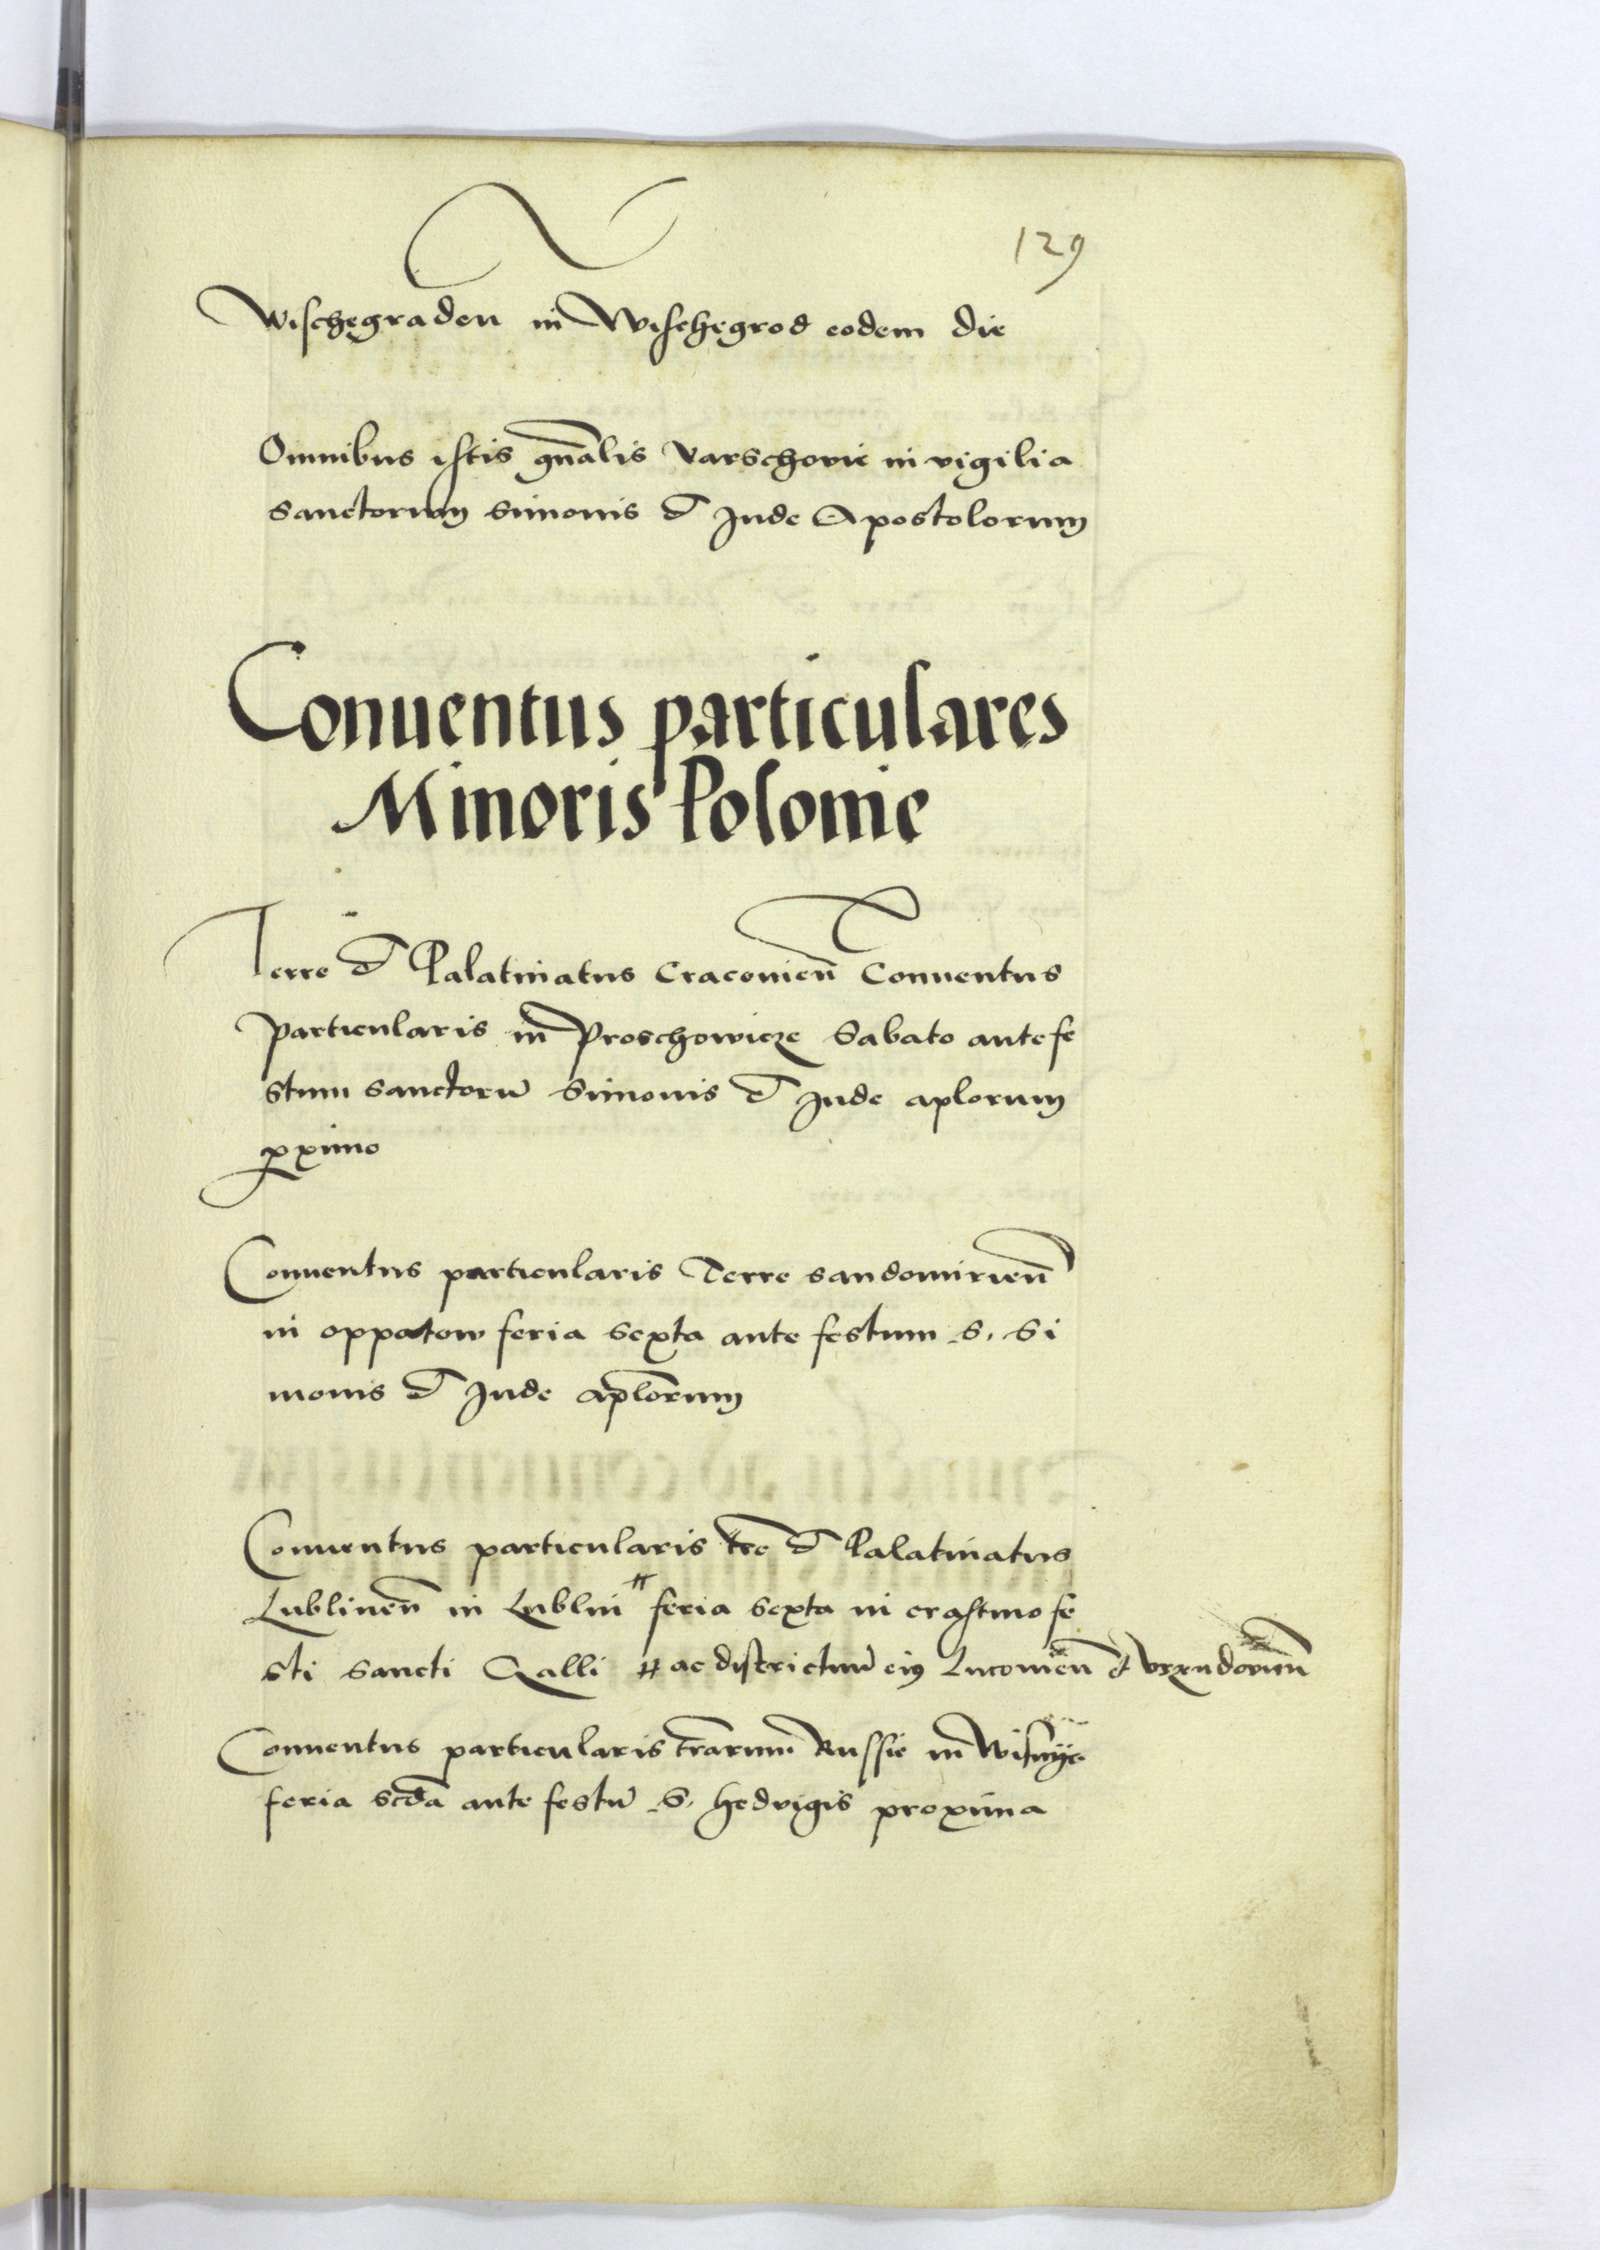 129
Wischegraden in Wischegrod eodem die
Omnibus istis gnalis Varschovie in vigilia
Sanctorum Simonis et Jude Apostolorum
Conuentus particulares
Minoris Polonie
Terre et Palatinatus Cracouien Conuentus
particularis in Proschowicze Sabato ante fe
stum sanctoru Simonis et Jude aplorum
pximo
Conuentus particularis Terre sandomirien
in oppatow feria sexta ante festum S. Si
monis et Jude aplorum
Conuentus particularis tre et Palatinatus
Lublinen in Lublin # feria sexta in crastino fe
sti Sancti Galli # ac districtuu eig Lucouien et
Conuentus particularis trarum Russie in
feria scda ante festu S. Hedvigis proxima